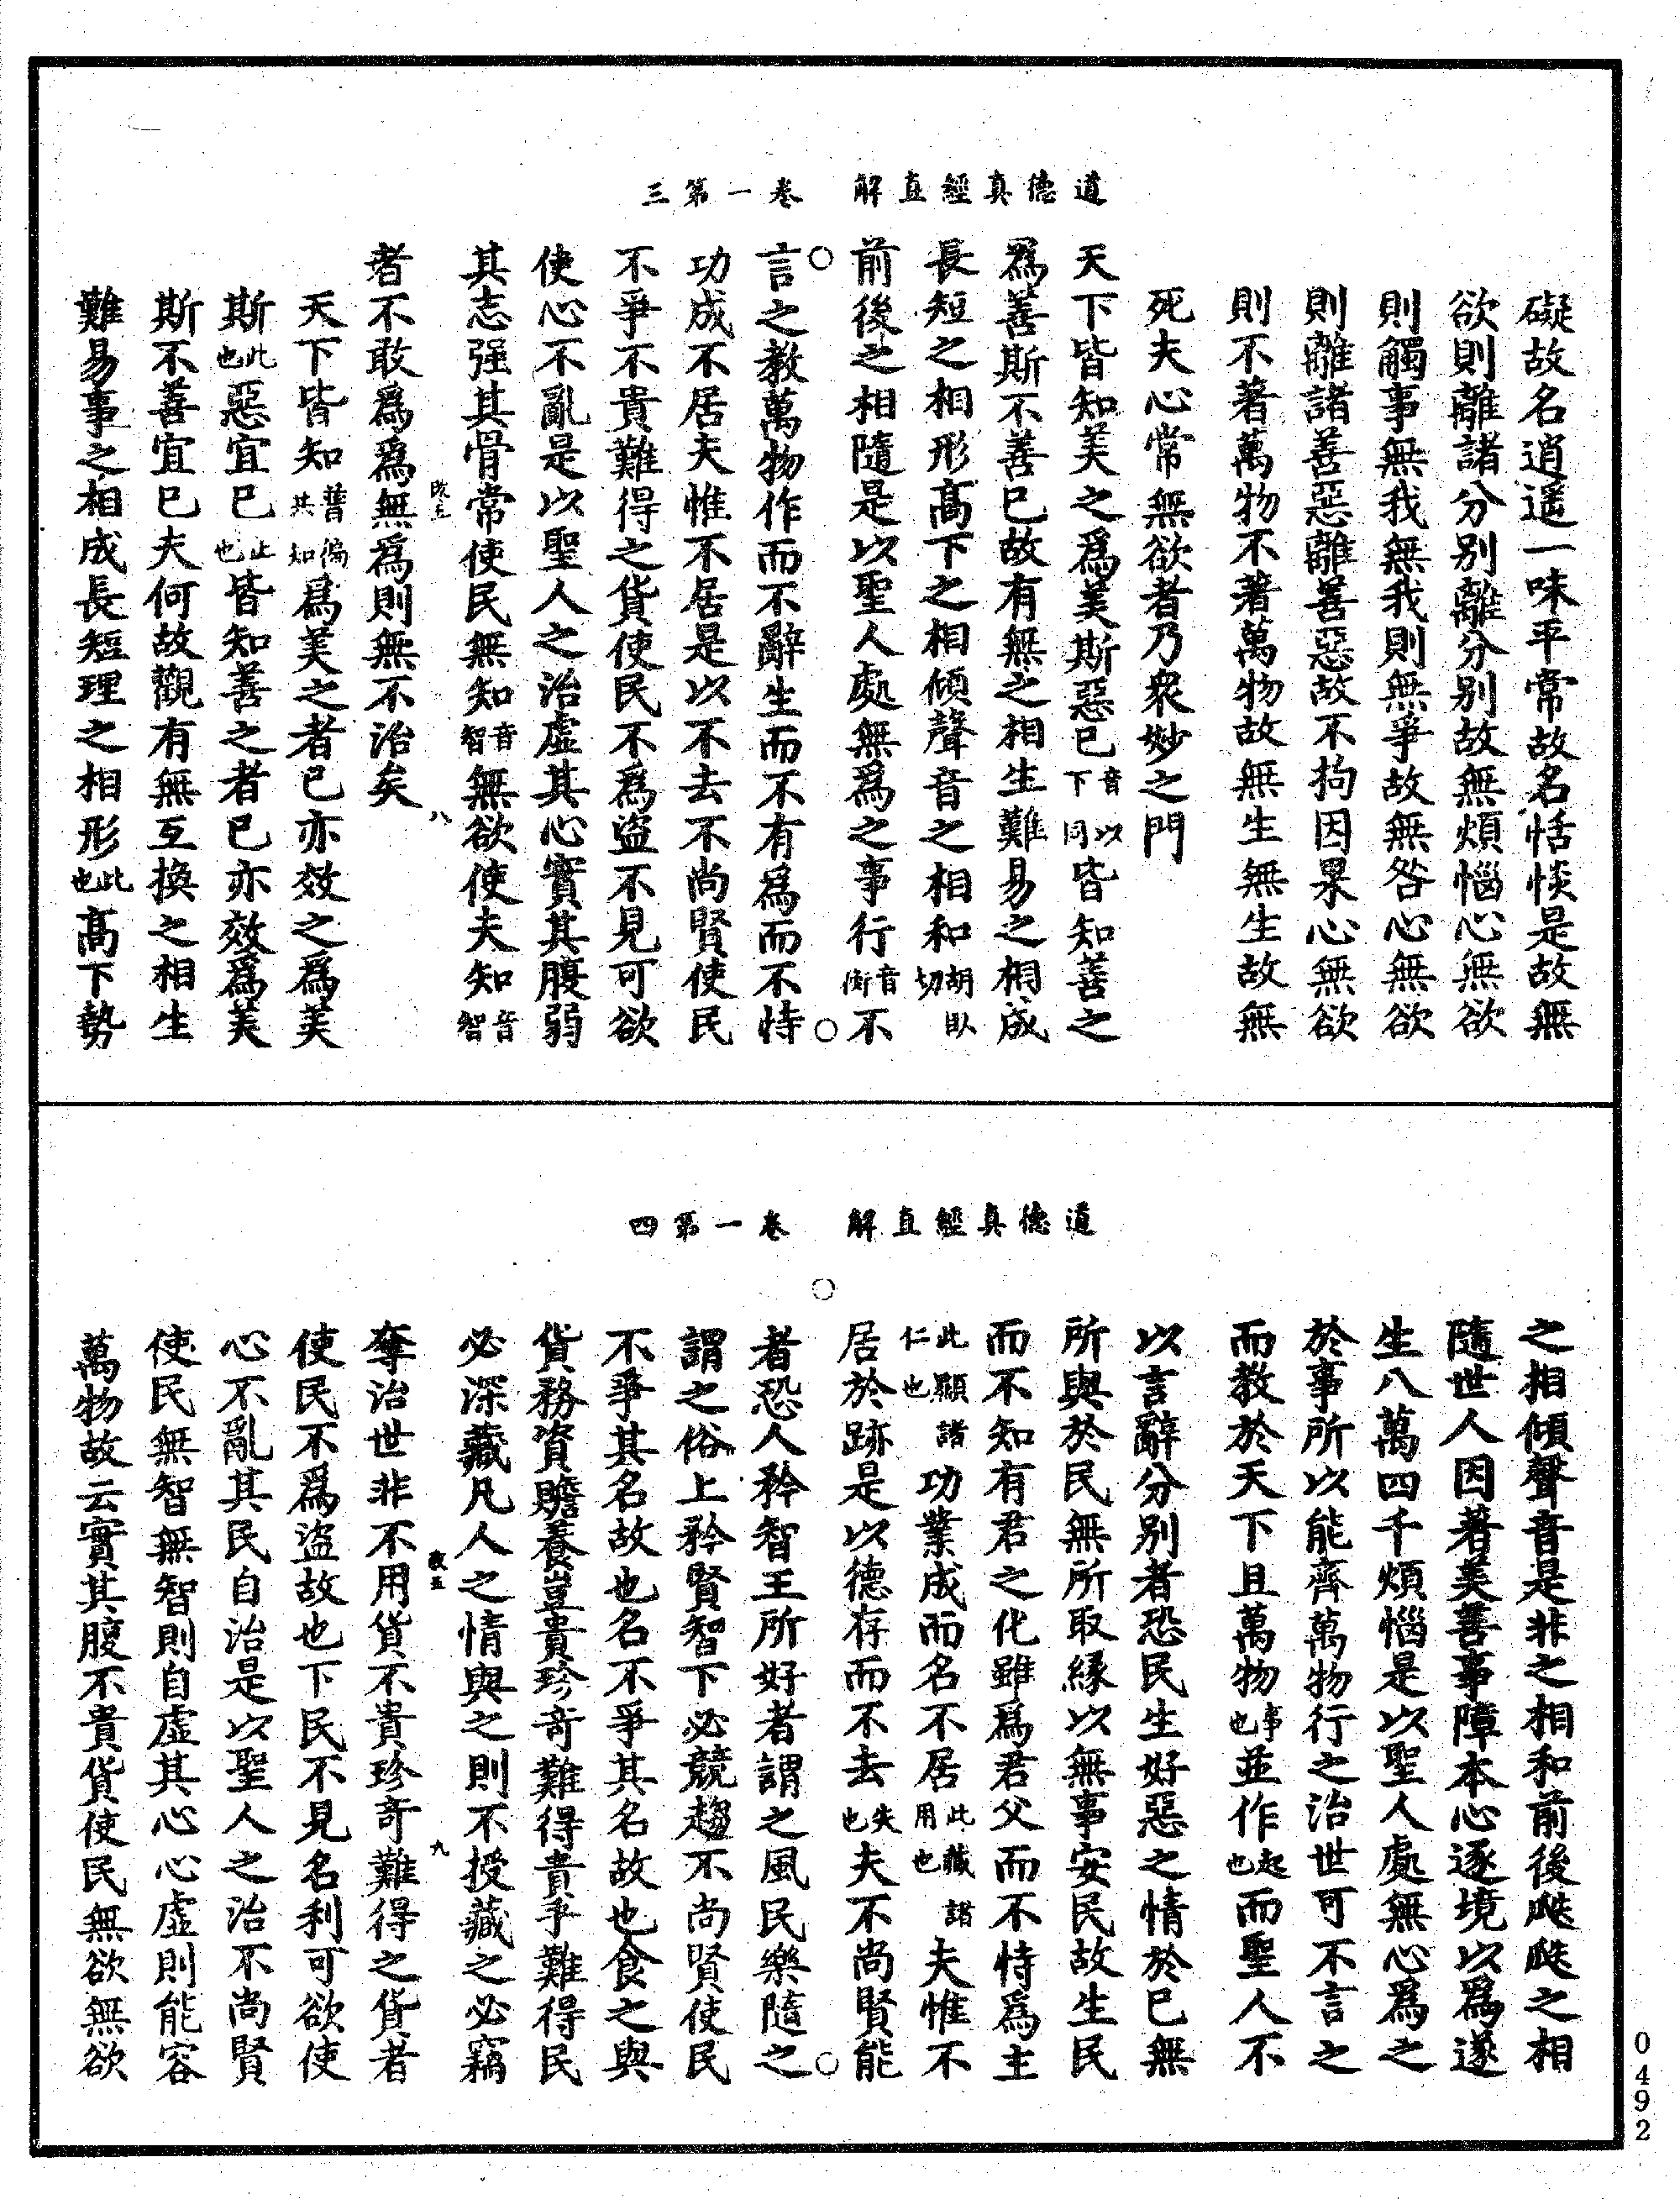 道德真經直解　卷一第三
礙故名逍遥一味平常故名恬惔是故無
欲則離諸分别離分别故無煩惱心無欲
則觸事無我無我則無爭故無咎心無欲
則離諸善惡離善惡故不拘因果心無欲
則不著萬物不著萬物故無生無生故無
死夫心常無欲者乃衆妙之門
天下皆知美之爲美斯惡已音以下同皆知善之
爲善斯不善已故有無之相生難易之相成
長短之相形髙下之相傾聲音之相和胡臥切
前後之相隨是以聖人處無爲之事行音衡不
言之教萬物作而不辭生而不有爲而不恃
功成不居夫惟不居是以不去不尚賢使民
不爭不貴難得之貨使民不爲盜不見可欲
使心不亂是以聖人之治虛其心實其腹弱
其志强其骨常使民無知音智無欲使夫知音智
者不敢爲爲無爲則無不治矣
八
天下皆知普徧共知爲美之者已亦效之爲美
斯此也惡宜已止也皆知善之者已亦效爲美
斯不善宜已夫何故觀有無互換之相生
難易事之相成長短理之相形此也髙下勢
道德真經直解　卷一第四
之相傾聲音是非之相和前後𨒪𨒪之相
隨世人因著美善事障本心逐境以爲遂
生八萬四千煩惱是以聖人處無心爲之
於事所以能齊萬物行之治世可不言之
而教於天下且萬物事也並作起也而聖人不
以言辭分别者恐民生好惡之情於已無
所與於民無所取緣以無事安民故生民
而不知有君之化雖爲君父而不恃爲主
此顯諸仁也功業成而名不居此藏諸用也夫惟不
居於跡是以德存而不去失也夫不尚賢能
者恐人矜智王所好者謂之風民樂隨之
謂之俗上矜賢智下必競趨不尚賢使民
不爭其名故也名不爭其名故也食之與
貨務資贍養豈貴珍奇難得貴乎難得民
必深藏凡人之情與之則不授藏之必竊
九
奪治世非不用貨不貴珍奇難得之貨者
使民不爲盜故也下民不見名利可欲使
心不亂其民自治是以聖人之治不尚賢
使民無智無智則自虛其心心虛則能容
萬物故云實其腹不貴貨使民無欲無欲
0492